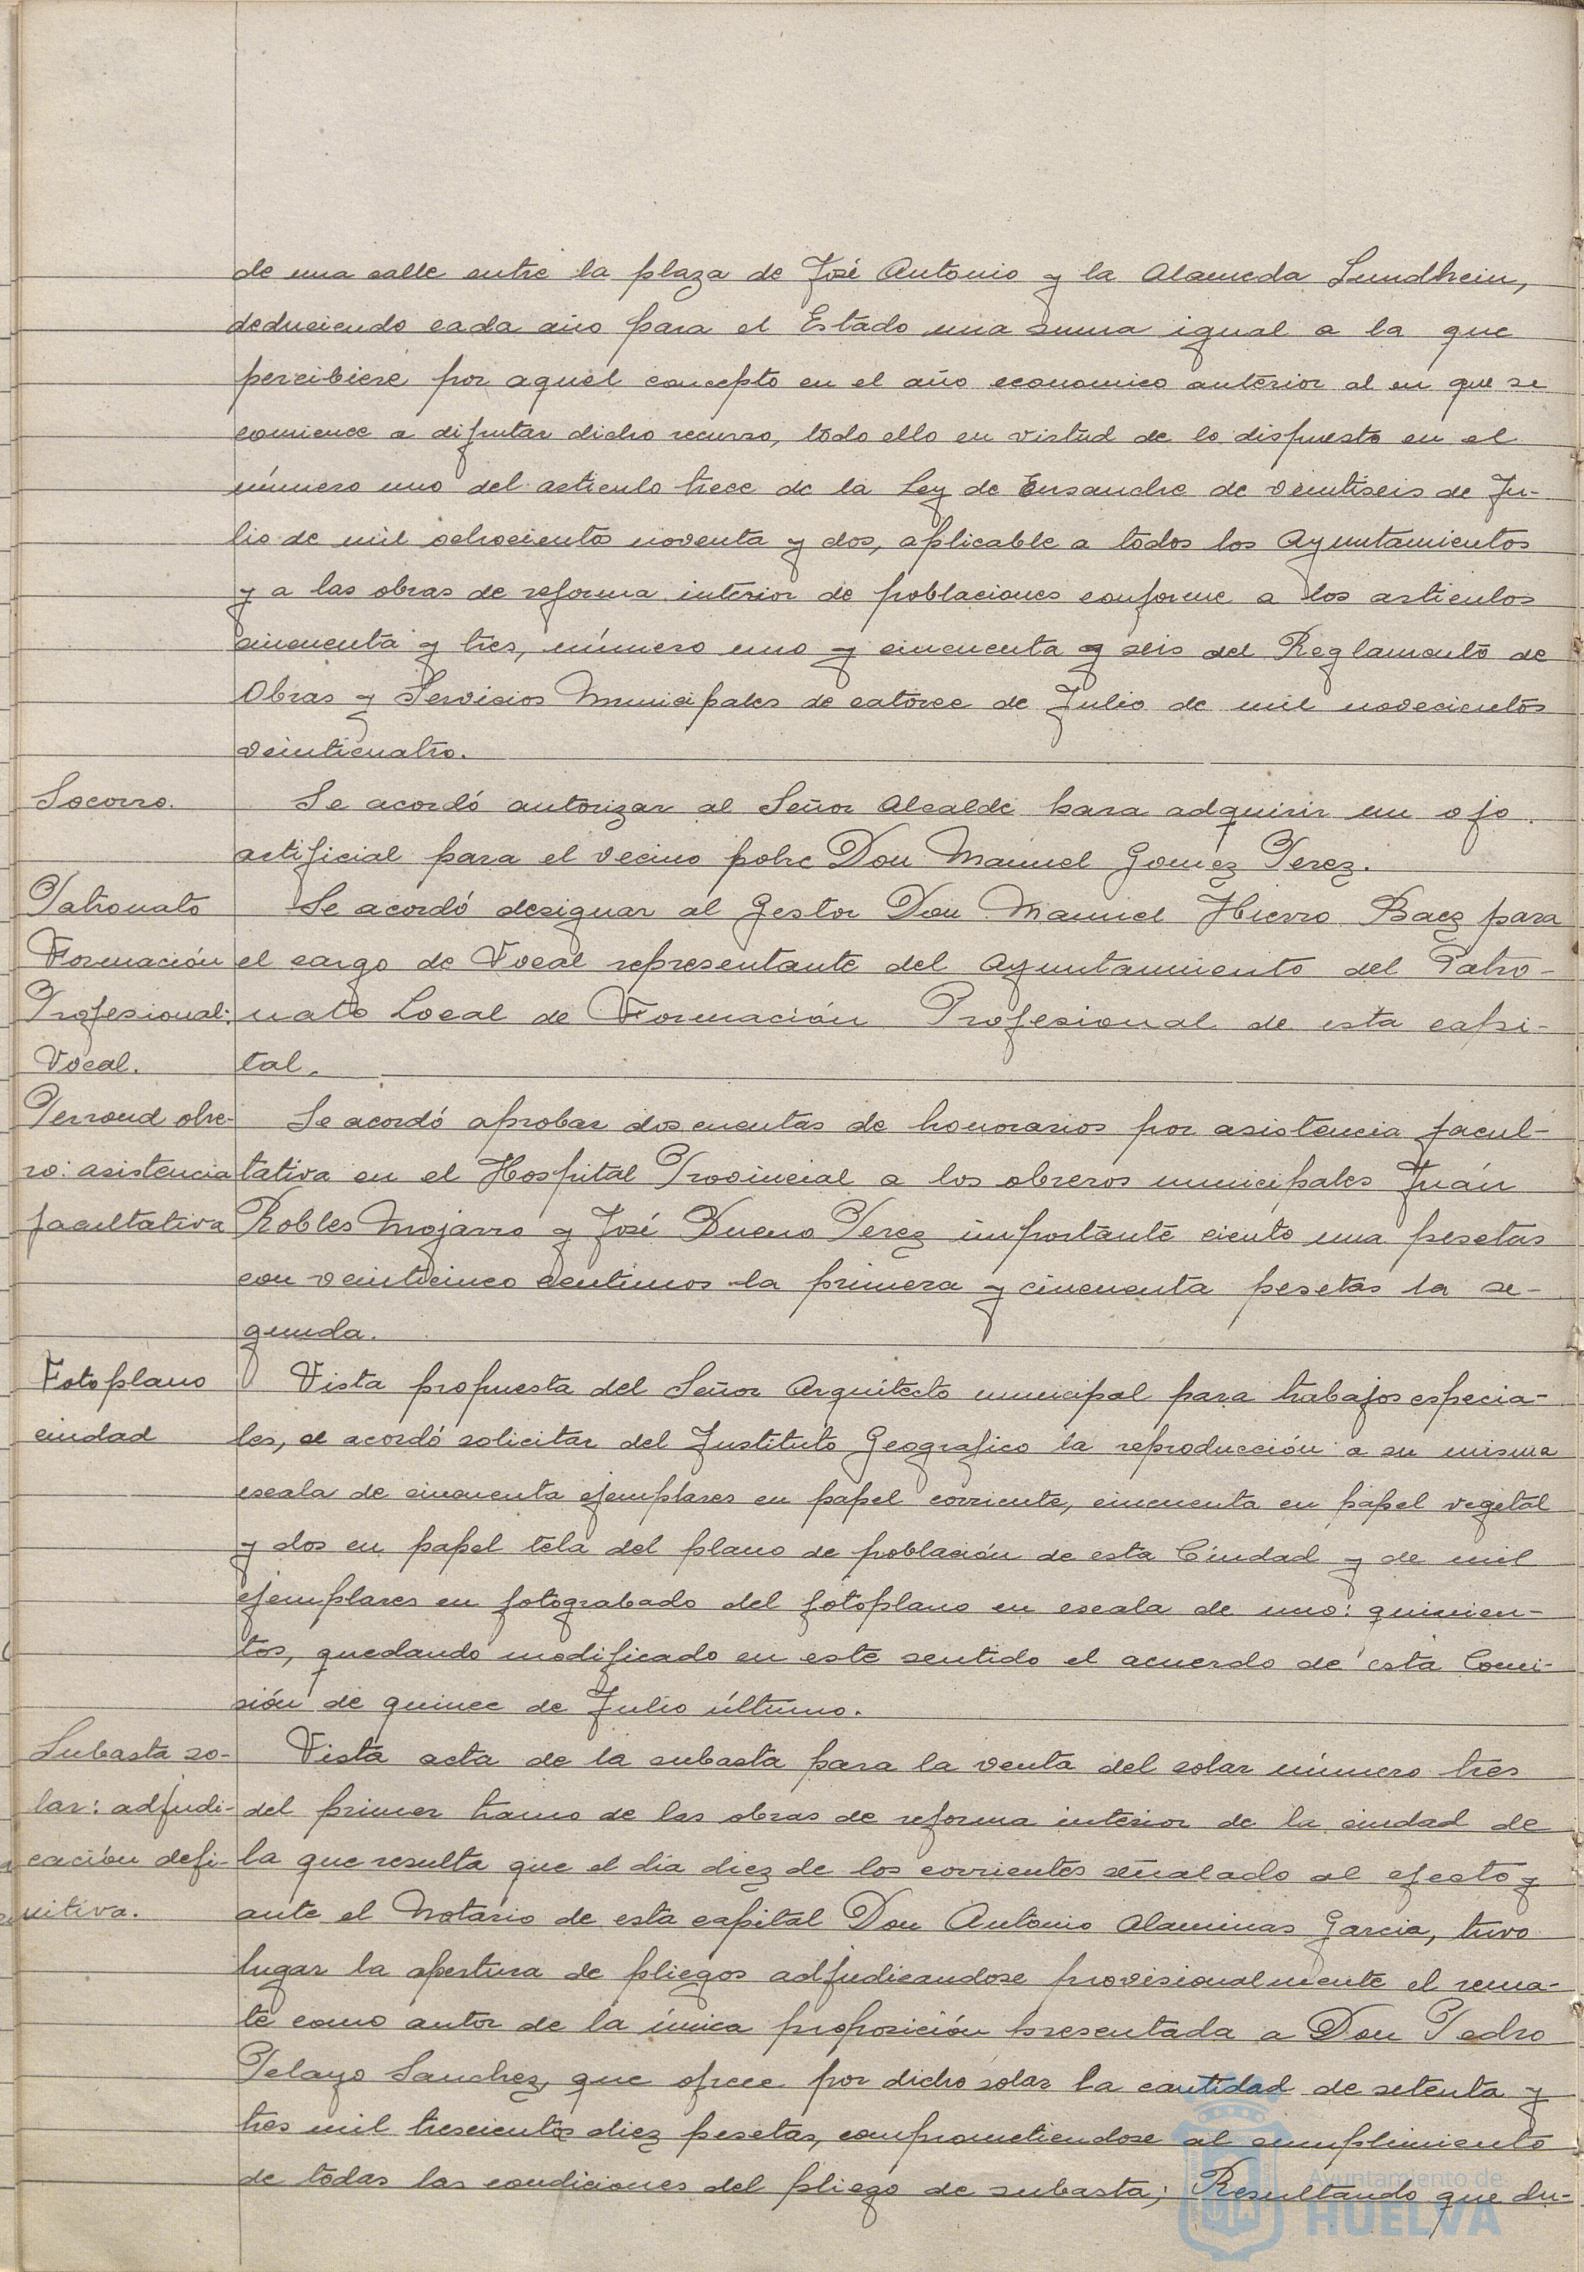 de una calle entre la plaza de José Antonio y la Alameda Sundhein,
deduciendo cada año para el Estado una suma igual a la que
percibiese por aquel concepto en el año economico anterior al en que se
comience a disfrutar dicho recurso, todo ello en virtud de lo dispuesto en el
número uno del articulo trece de la Ley de Ensanche de veintiseis de Ju-
lio de mil ochocientos noventa y dos, aplicable a todos los Ayuntamientos
y a las obras de reforma interior de poblaciones conforme a los articulos
cincuenta y tres, número uno y cincuenta y seis del Reglamento de
Obras y Servicios Municipales de catorce de Julio de mil novecientos
veinticuatro.
Socorro. Se acordó autorizar al Señor Alcalde para adquirir un ojo
artificial para el vecino pobre Don Manuel Gomez Perez.
Patronato Se acordó designar al Gestor Don Manuel Hierro Baez para
Formación el cargo de Vocal representante del Ayuntamiento del Patro-
Profesional: nato Local de Formación Profesional de esta capi-
Vocal. tal.
Personal obre- Se acordó aprobar dos cuentas de honorarios por asistencia facul-
ro: asistencia tativa en el Hospital Provincial a los obreros municipales Juán
facultativa Robles Mojarro y José Bueno Perez importante ciento una pesetas
con veinticinco centimos la primera y cincuenta pesetas la se-
gunda.
Fotoplano Vista propuesta del Señor Arquitecto municipal para trabajos especia-
ciudad les, se acordó solicitar del Instituto Geografico la reproducción a su misma
escala de cincuenta ejemplares en papel corriente, cincuenta en papel vegetal
y dos en papel tela del plano de población de esta Ciudad y de mil
ejemplares en fotograbado del fotoplano en escala de uno: quinien-
tos, quedando modificado en este sentido el acuerdo de esta Comi-
sión de quince de Julio último.
Subasta so- Vista acta de la subasta para la venta del solar número tres
lar: adjudi- del primer tramo de las obras de reforma interior de la ciudad de
cación defi- la que resulta que el dia diez de los corrientes señalado al efecto y
nitiva. ante el Notario de esta capital Don Antonio Alaminas Garcia, tuvo
lugar la apertura de pliegos adjudicandose provisionalmente el rema-
te como autor de la única proposición presentada a Don Pedro
Pelayo Sanchez, que ofrece por dicho solar la cantidad de setenta y
tres mil trescientos diez pesetas, comprometiendose al cumplimiento
de todas las condiciones del pliego de subasta; Resultando que du-
Ayuntamiento de
HUELVA